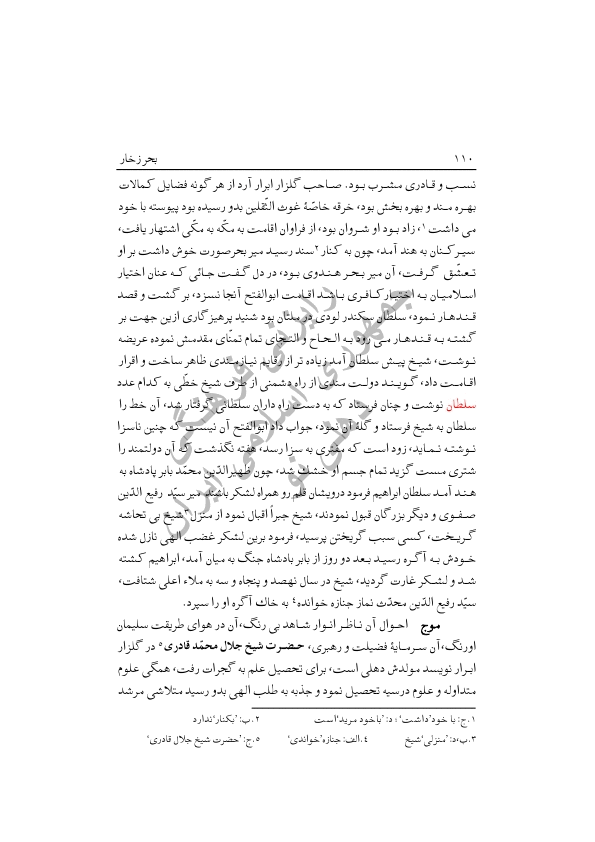 ۱۱۰ بحر زخار
نسب و قادری مشرب بود. صاحب گلزار ابرار آرد از هر گونه فضایل کمالات
بهره مند و بهره بخش بود، خرقه خاصّهٔ غوث الثّقلین بدو رسیده بود پیوسته با خود
می داشت۱، زاد بود او شروان بود، از فراوان اقامت به مکّه به مکّی اشتهار یافت،
سیر کنان به هند آمد، چون به کنار۲ سند رسید میر بحر صورت خوش داشت بر او
تعشّق گرفت، آن میر بحر هندوی بود، در دل گفت جائی که عنان اختیار
اسلامیان به اختیار کافری باشد اقامت ابوالفتح آنجا نسزد، بر گشت و قصد
قندهار نمود، سلطان سکندر لودی در ملتان بود شنید پرهیزگاری ازین جهت بر
گشته به قندهار می رود به الحاح و التجای تمام تمنّای مقدمش نموده عریضه
نوشت، شیخ پیش سلطان آمد زیاده تر از رقایم نیازمندی ظاهر ساخت و اقرار
اقامت داد، گویند دولت مندی از راه دشمنی از طرف شیخ خطّی به کدام عدد
سلطان نوشت و چنان فرستاد که به دست راه داران سلطانی گرفتار شد، آن خط را
سلطان به شیخ فرستاد و گلهٔ آن نمود، جواب داد ابوالفتح آن نیست که چنین ناسزا
نوشته نماید، زود است که مفتری به سزا رسد، هفته نگذشت که آن دولتمند را
شتری مست گزید تمام جسم او خشک شد، چون ظهیرالدّین محمّد بابر پادشاه به
هند آمد سلطان ابراهیم فرمود درویشان قلم رو همراه لشکر باشند میر سیّد رفیع الدّین
صفوی و دیگر بزرگان قبول نمودند، شیخ جبراً اقبال نمود از منزل۳ شیخ بی تحاشه
گریخت، کسی سبب گریختن پرسید، فرمود برین لشکر غضب الهی نازل شده
خودش به آگره رسید بعد دو روز از بابر بادشاه جنگ به میان آمد، ابراهیم کشته
شد و لشکر غارت گردید، شیخ در سال نهصد و پنجاه و سه به ملاء اعلی شتافت،
سیّد رفیع الدّین محدّث نماز جنازه خوانده۴ به خاك آگره او را سپرد.
موج احوال آن ناظر انوار شاهد بی رنگ، آن در هوای طریقت سلیمان
اورنگ، آن سرمایهٔ فضیلت و رهبری، حضرت شیخ جلال محمّد قادری۵ در گلزار
ابرار نویسد مولدش دهلی است، برای تحصیل علم به گجرات رفت، همگی علوم
متداوله و علوم درسیه تحصیل نمود و جذبه به طلب الهی بدو رسید متلاشی مرشد
۱.ج: با خود'داشت'؛ د: 'باخود مرید'است ۲.ب: 'بکنار'ندارد
۳.ب،د: 'منزلی'شیخ ۴.الف: جنازه'خواندی' ۵.ج: 'حضرت شیخ جلال قادری'